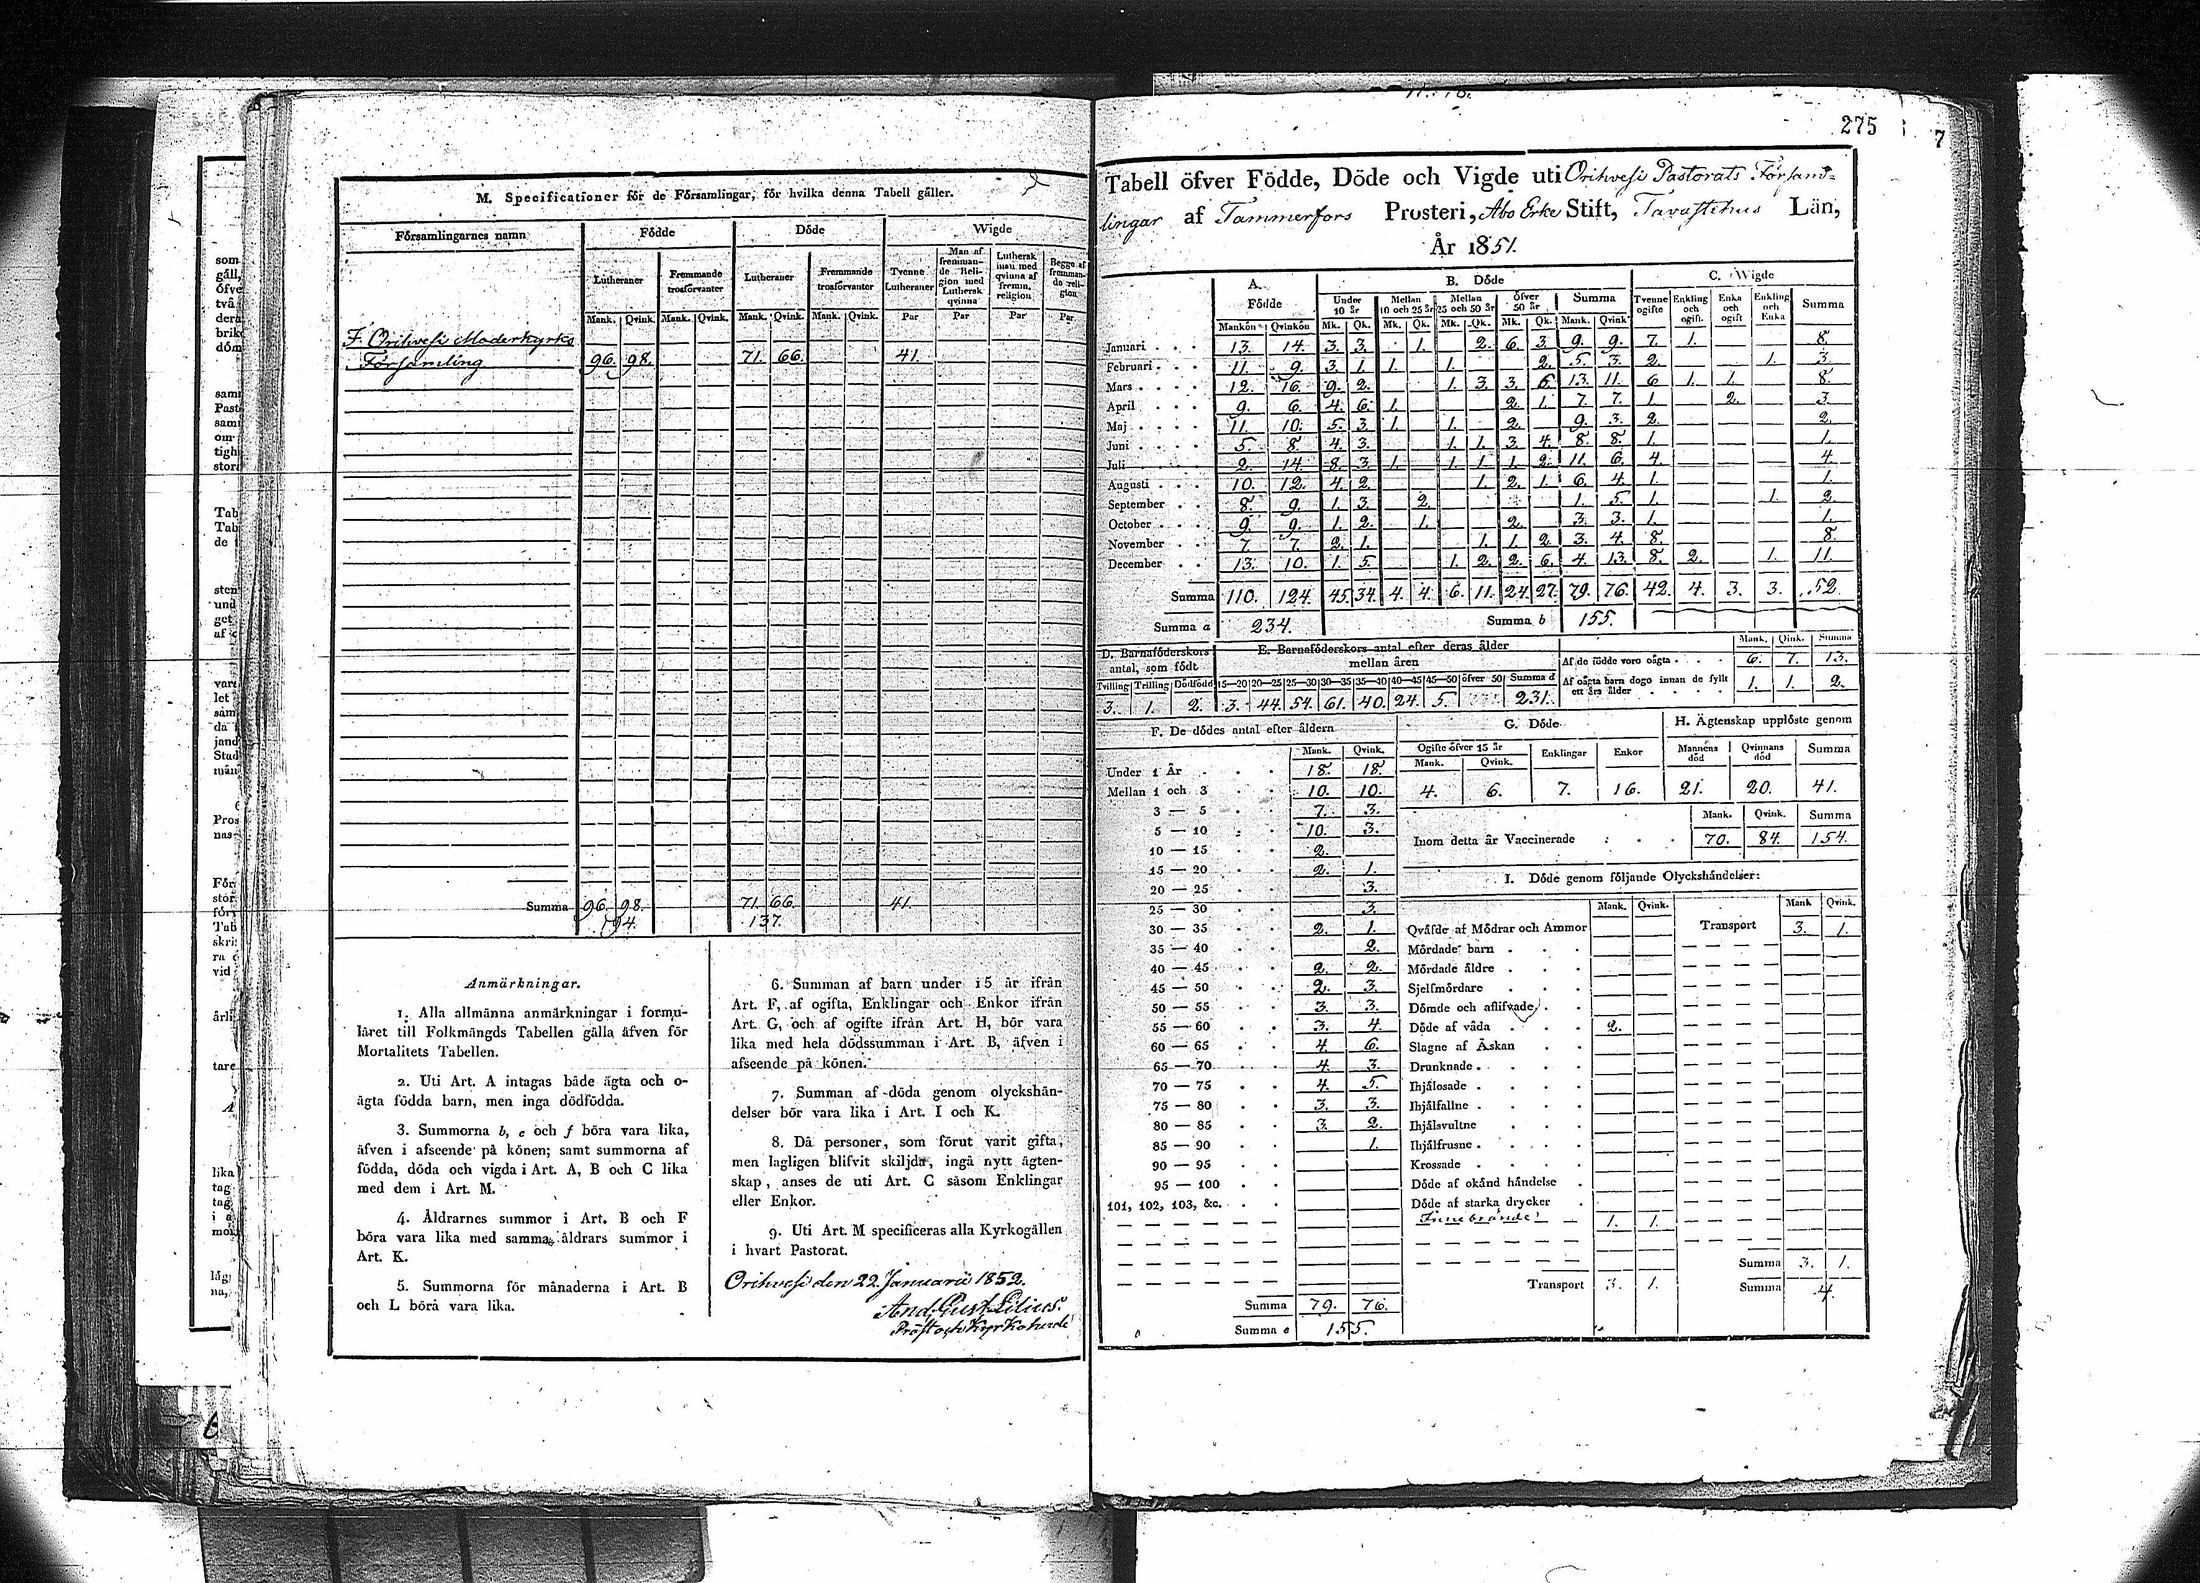 M. Specificationer för de Församlingar, för hvilka denna Tabell gäller.
Församlingarnes namn | Födde | Döde | Wigde
Lutheraner | Fremmande trosförvanter | Lutheraner | Fremmande trosförvanter | Tvenne Lutheraner | Man af fremmande Religion med Luthersk qvinna | Luthersk man med qvinna af fremm. religion | Begge af fremmande religion
Mank. | Qvink. | Mank. | Qvink. | Mank. | Qvink. | Mank. | Qvink. | Par | Par | Par | Par
F. Orihvesi Moderkyrko
Församling 96. 98. 71. 66. 41.
Summa 96. 98. 71. 66. 41.
194. 137.
Anmärkningar.
1. Alla allmänna anmärkningar i formu-
läret till Folkmängds Tabellen gälla äfven för
Mortalitets Tabellen.
2. Uti Art. A intagas både ägta och o-
ägta födda barn, men inga dödfödda.
3. Summorna b, e och f böra vara lika,
äfven i afseende på könen; samt summorna af
födda, döda och vigda i Art. A, B och C lika
med dem i Art. M.
4. Åldrarnes summor i Art. B och F
böra vara lika med samma åldrars summor i
Art. K.
5. Summorna för månaderna i Art. B
och L böra vara lika.
6. Summan af barn under 15 år ifrån
Art. F, af ogifta, Enklingar och Enkor ifrån
Art. G, och af ogifte ifrån Art. H, bör vara
lika med hela dödssumman i Art. B, äfven i
afseende på könen.
7. Summan af döda genom olyckshän-
delser bör vara lika i Art. I och K.
8. Då personer, som förut varit gifta,
men lagligen blifvit skiljda, ingå nytt ägten-
skap, anses de uti Art. C såsom Enklingar
eller Enkor.
9. Uti Art. M specificeras alla Kyrkogällen
i hvart Pastorat.
Orihvesi den 22. Januarii 1852.
And. Gust. Lilius.
Prost och Kyrkoherde
275
7
Tabell öfver Födde, Döde och Vigde uti Orihvesi Pastorats Försam=
lingar af Tammerfors Prosteri, Åbo Erke Stift, Tavastehus Län,
År 1851.
A. Födde | B. Döde | C. Wigde
Under 10 år | Mellan 10 och 25 år | Mellan 25 och 50 år | Öfver 50 år | Summa | Tvenne ogifte | Enkling och ogift | Enka och ogift | Enkling och Enka | Summa
Mankön | Qvinkön | Mk. | Qk. | Mk. | Qk. | Mk. | Qk. | Mk. | Qk. | Mank. | Qvink.
Januari 13. 14. 3. 3. 1. 2. 6. 3. 9. 9. 7. 1. 8.
Februari 11. 9. 3. 1. 1. 1. 2. 5. 3. 2. 1. 3.
Mars 12. 16. 9. 2. 1. 3. 3. 6. 13. 11. 6. 1. 1. 8.
April 9. 6. 4. 6. 1. 2. 1. 7. 7. 1. 2. 3.
Maj 11. 10. 5. 3. 1. 1. 2. 9. 3. 2. 2.
Juni 5. 8. 4. 3. 1. 1. 3. 4. 8. 8. 1. 1.
Juli 2. 14. 8. 3. 1. 1. 1. 1. 2. 11. 6. 4. 4.
Augusti 10. 12. 4. 2. 1. 2. 1. 6. 4. 1. 1.
September 8. 9. 1. 3. 2. 1. 5. 1. 1. 2.
October 9. 9. 1. 2. 1. 2. 3. 3. 1. 1.
November 7. 7. 2. 1. 1. 1. 2. 3. 4. 8. 8.
December 13. 10. 1. 5. 1. 2. 2. 6. 4. 13. 8. 2. 1. 11.
Summa 110. 124. 45. 34. 4. 4. 6. 11. 24. 27. 79. 76. 42. 4. 3. 3. 52.
Summa a 234. Summa b 155.
D. Barnaföderskors antal, som födt
Tvilling | Trilling | Dödfödd
3. 1. 2.
E. Barnaföderskors antal efter deras ålder
mellan åren
15—20 | 20—25 | 25—30 | 30—35 | 35—40 | 40—45 | 45—50 | öfver 50 | Summa d
3. 44. 54. 61. 40. 24. 5. 231.
Mank. | Qink. | Summa
Af de födde voro oägta 6. 7. 13.
Af oägta barn dogo innan de fyllt
ett års ålder 1. 1. 2.
F. De dödes antal efter åldern
Mank. | Qvink.
Under 1 År 18. 18.
Mellan 1 och 3 10. 10.
3 — 5 7. 3.
5 — 10 10. 3.
10 — 15 2.
15 — 20 2. 1.
20 — 25 3.
25 — 30 3.
30 — 35 2. 1.
35 — 40 2.
40 — 45 2. 2.
45 — 50 2. 3.
50 — 55 3. 3.
55 — 60 3. 4.
60 — 65 4. 6.
65 — 70 4. 3.
70 — 75 4. 5.
75 — 80 3. 3.
80 — 85 3. 2.
85 — 90 1.
90 — 95
95 — 100
101, 102, 103, &c.
Summa 79. 76.
Summa e 155.
G. Döde
Ogifte öfver 15 år | Enklingar | Enkor
Mank. | Qvink.
4. 6. 7. 16.
H. Ägtenskap upplöste genom
Mannens död | Qvinnans död | Summa
21. 20. 41.
Mank. | Qvink. | Summa
Inom detta år Vaccinerade 70. 84. 154.
I. Döde genom följande Olyckshändelser:
Mank. | Qvink. | Mank | Qvink.
Qväfde af Mödrar och Ammor Transport 3. 1.
Mördade barn
Mördade äldre
Sjelfmördare
Dömde och aflifvade
Döde af våda 2.
Slagne af Åskan
Drunknade
Ihjälosade
Ihjälfallne
Ihjälsvultne
Ihjälfrusne
Krossade
Döde af okänd händelse
Döde af starka drycker
Innebrände 1. 1.
Summa 3. 1.
Transport 3. 1. Summa 4.